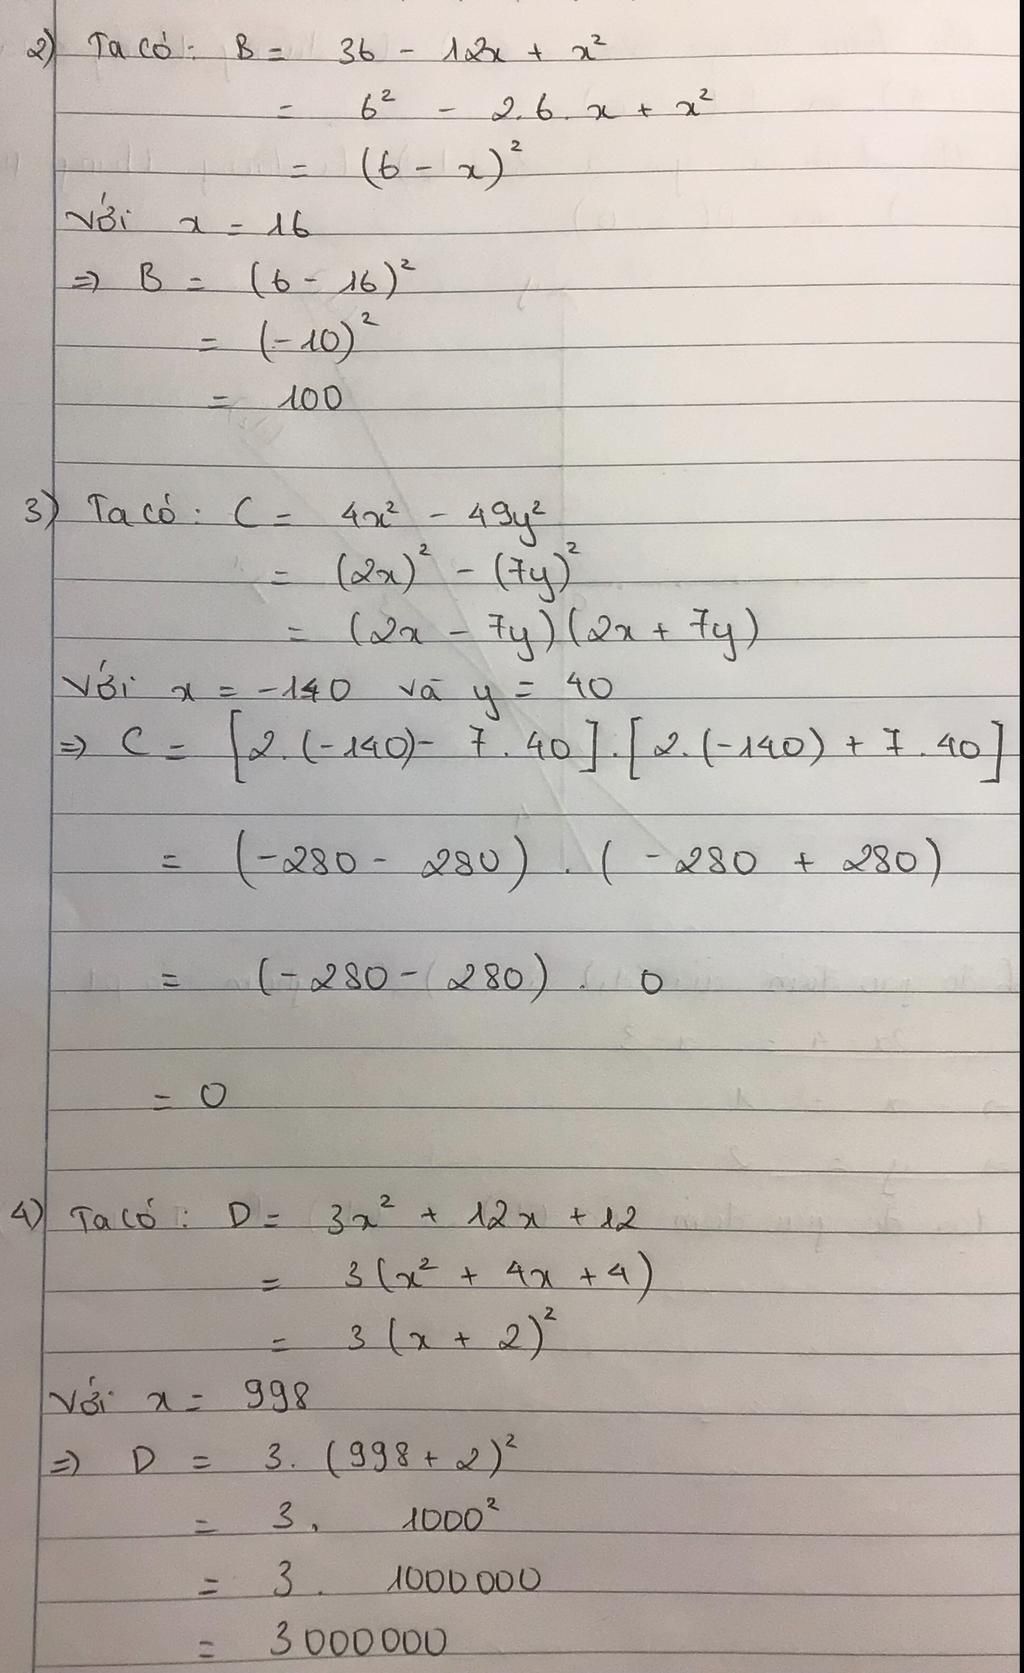 2) Ta có: B = 36 - 12x + x²
= 6² - 2.6.x + x²
= (6 - x)²
Với x = 16
=> B = (6 - 16)²
= (-10)²
= 100
3) Ta có: C = 4x² - 49y²
= (2x)² - (7y)²
= (2x - 7y)(2x + 7y)
Với x = -140 và y = 40
=> C = [2.(-140) - 7.40].[2.(-140) + 7.40]
= (-280 - 280).(-280 + 280)
= (-280 - 280). 0
= 0
4) Ta có: D = 3x² + 12x + 12
= 3(x² + 4x + 4)
= 3(x + 2)²
Với x = 998
=> D = 3.(998 + 2)²
= 3. 1000²
= 3. 1000000
= 3000000